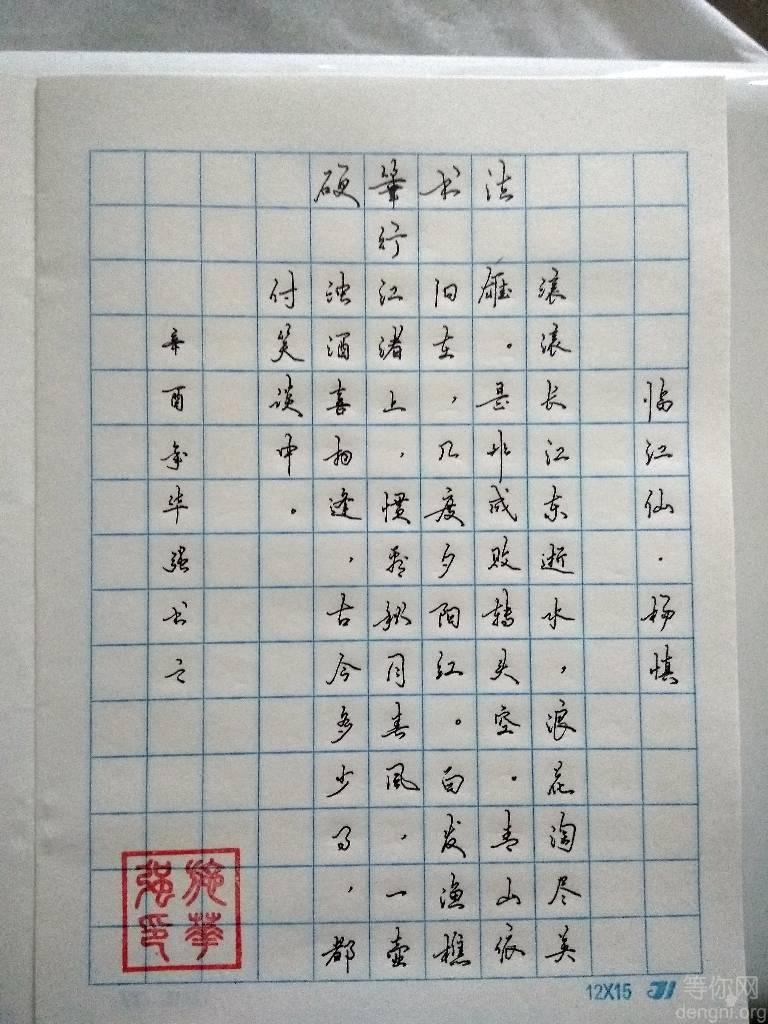 硬筆书法
行
临江仙·杨慎
滚滚长江东逝水，浪花淘尽英
雄。是非成败转头空。青山依
旧在，几度夕阳红。白发渔樵
江渚上，惯看秋月春风，一壶
浊酒喜相逢，古今多少事，都
付笑谈中。
辛酉年华强书之
施華强印
12X15
等你网
dengni.org